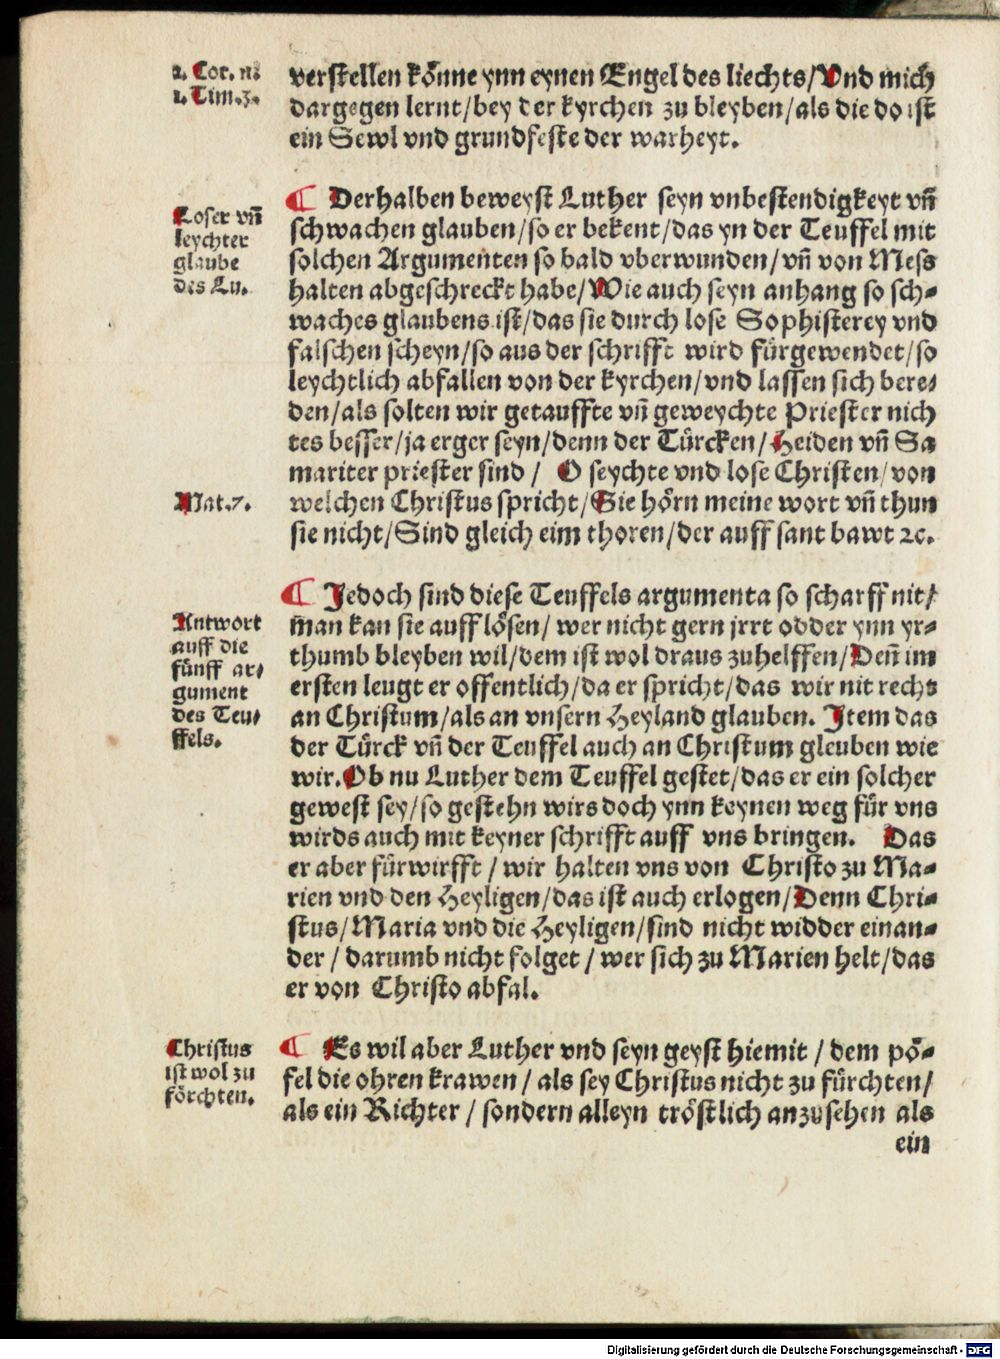 2. Cor. 11.
1. Tim. 3.
verstellen könne ynn eynen Engel des liechts/Vnd mich
dargegen lernt/bey der kyrchen zu bleyben/als die do ist
ein Sewl vnd grundfeste der warheyt.
Loser vñ
leychter
glaube
des Lu.
¶ Derhalben beweyst Luther seyn vnbestendigkeyt vñ
schwachen glauben/so er bekent/das yn der Teuffel mit
solchen Argumenten so bald vberwunden/vñ von Mess
halten abgeschreckt habe/Wie auch seyn anhang so sch-
waches glaubens ist/das sie durch lose Sophisterey vnd
falschen scheyn/so aus der schrifft wird fürgewendet/so
leychtlich abfallen von der kyrchen/vnd lassen sich bere-
den/als solten wir getauffte vñ geweychte Priester nich
tes besser/ja erger seyn/denn der Türcken/Heiden vñ Sa
mariter priester sind / O seychte vnd lose Christen/von
Mat. 7.
welchen Christus spricht/Sie hörn meine wort vñ thun
sie nicht/Sind gleich eim thoren/der auff sant bawt ꝛc.
Antwort
auff die
fünff ar-
gument
des Teu-
ffels.
¶ Jedoch sind diese Teuffels argumenta so scharff nit/
man kan sie aufflösen/ wer nicht gern jrrt odder ynn yr-
thumb bleyben wil/dem ist wol draus zuhelffen/Deñ im
ersten leugt er offentlich/da er spricht/das wir nit rechs
an Christum/als an vnsern Heyland glauben. Jtem das
der Türck vñ der Teuffel auch an Christum gleuben wie
wir.Ob nu Luther dem Teuffel gestet/das er ein solcher
gewest sey/so gestehn wirs doch ynn keynen weg für vns
wirds auch mit keyner schrifft auff vns bringen. Das
er aber fürwirfft / wir halten vns von Christo zu Ma-
rien vnd den Heyligen/das ist auch erlogen/Denn Chri-
stus/Maria vnd die Heyligen/sind nicht widder einan-
der / darumb nicht folget / wer sich zu Marien helt/das
er von Christo abfal.
Christus
ist wol zu
förchten.
¶ Es wil aber Luther vnd seyn geyst hiemit / dem pö-
fel die ohren krawen / als sey Christus nicht zu fürchten/
als ein Richter / sondern alleyn tröstlich anzusehen als
ein
Digitalisierung gefördert durch die Deutsche Forschungsgemeinschaft - DFG